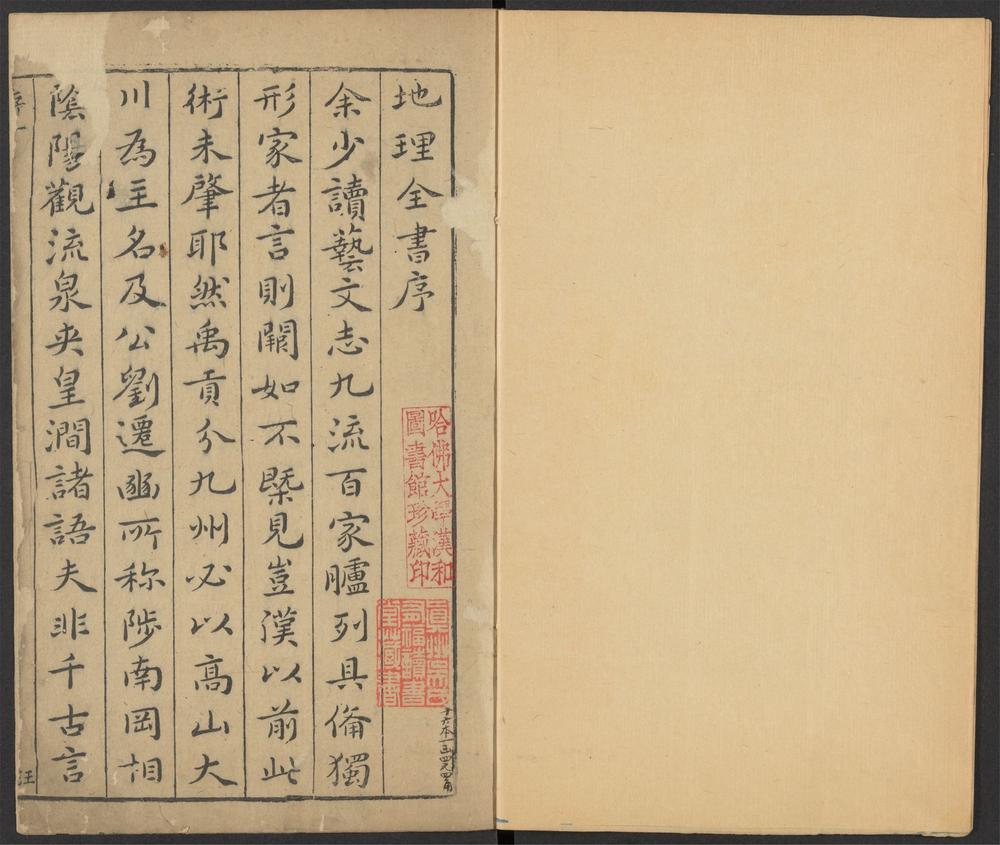 地理全書序
余少讀藝文志九流百家臚列具俻獨
形家者言則闕如不槩見豈漢以前此
術未肇耶然禹貢分九州必以高山大
川為主名及公劉遷豳所称陟南岡相
陰陽觀流泉夾皇澗諸語夫非千古言
序一
汪
哈佛大學漢和
圖書館珍藏印
真州吳氏
有福讀書
堂藏書